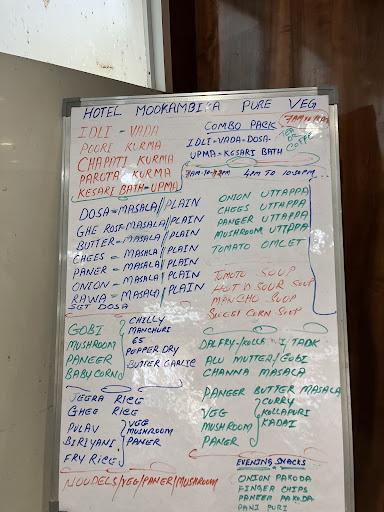 HOTEL MOOKAMBIKA PURE VEG
IDLI - VADA
POORI KURMA
CHAPATI KURMA
PAROTA KURMA
KESARI BATH - UPMA
COMBO PACK
IDLI-VADA-DOSA-
UPMA-KESARI BATH
TEA
OR
COFFE
4PM TO 10:30PM
DOSA = MASALA // PLAIN
GHE ROST = MASALA // PLAIN
BUTTER = MASALA // PLAIN
CHEES = MASALA // PLAIN
PANER = MASALA // PLAIN
ONION = MASALA // PLAIN
RAWA = MASALA // PLAIN
SET DOSA
ONION UTTAPPA
CHEES UTTAPPA
PANEER UTTAPPA
MUSHROOM UTTPPA
TOMATO OMLET
TOMOTO SOUP
HOT N SOUR SOUP
MANCHO SOUP
SWEET CORN SOUP
GOBI
MUSHROOM
PANEER
BABY CORN
CHILLY
MANCHURI
65
POPPER DRY
BUTTER GARLIC
DALFRY / KOLLE I TADK
ALU MUTTER / GOBI
CHANNA MASALA
PANEER BUTTER MASALA
VEG
MUSHROOM
PANER
CURRY
KOLLAPURI
KADAI
JEERA RICE
GHEE RICE
PULAV
BIRIYANI
FRY RICE
VEG
MUSHROOM
PANER
NOODELS / VEG / PANER / MUSHROOM
EVENING SNACKS
ONION PAKODA
FINGER CHIPS
PANEER PAKODA
PANI PURI